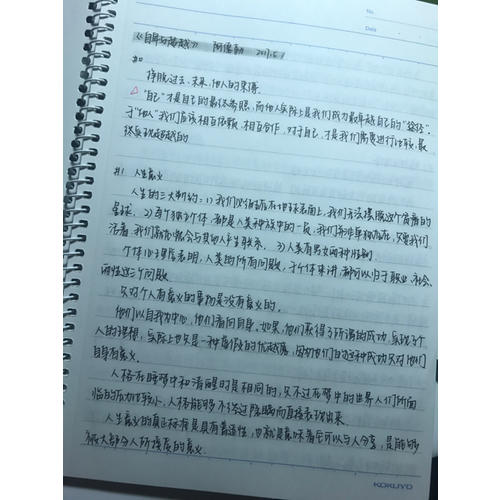 No.
Date
《自卑与超越》 阿德勒 2017.5.1
#0
挣脱过去、未来、他人的束缚
△ "自己"才是自己的最终参照,而他人实际上是我们成为超越自己的"途径",
于"他人"我们应该相互依赖,相互合作,对于自己,才是我们需要进行比较,最
终实现超越的
#1 人生意义
人生的三大制约:1)我们必须生存在地球表面上,我们无法摆脱这个贫瘠的
星球。2)每个独立个体,都是人类种族中的一员,我们并非单独存在,只要我们
活着,我们就会与其他人产生联系。3)人类有男女两种性别。
个体心理学表明,人类的所有问题,于个体来讲,都可以归于职业、社会、
两性这三个问题
只对个人有意义的事物是没有意义的。
他们以自我为中心,他们着向自身。如果,他们获得了所谓的成功,实现了个
人的理想,实际上也只是一种虚假的优越感,因为他们的这种成功只对他们
自身有意义。
人格在睡梦中和清醒时是相同的,只不过在梦中的世界人们所面
临的压力比较小,人格能够不经过隐瞒而直接表现出来
人生意义的真正标准是具有普适性,也就是意味着它可以与人分享,是能够
被大部分人所接受的意义
KOKUYO